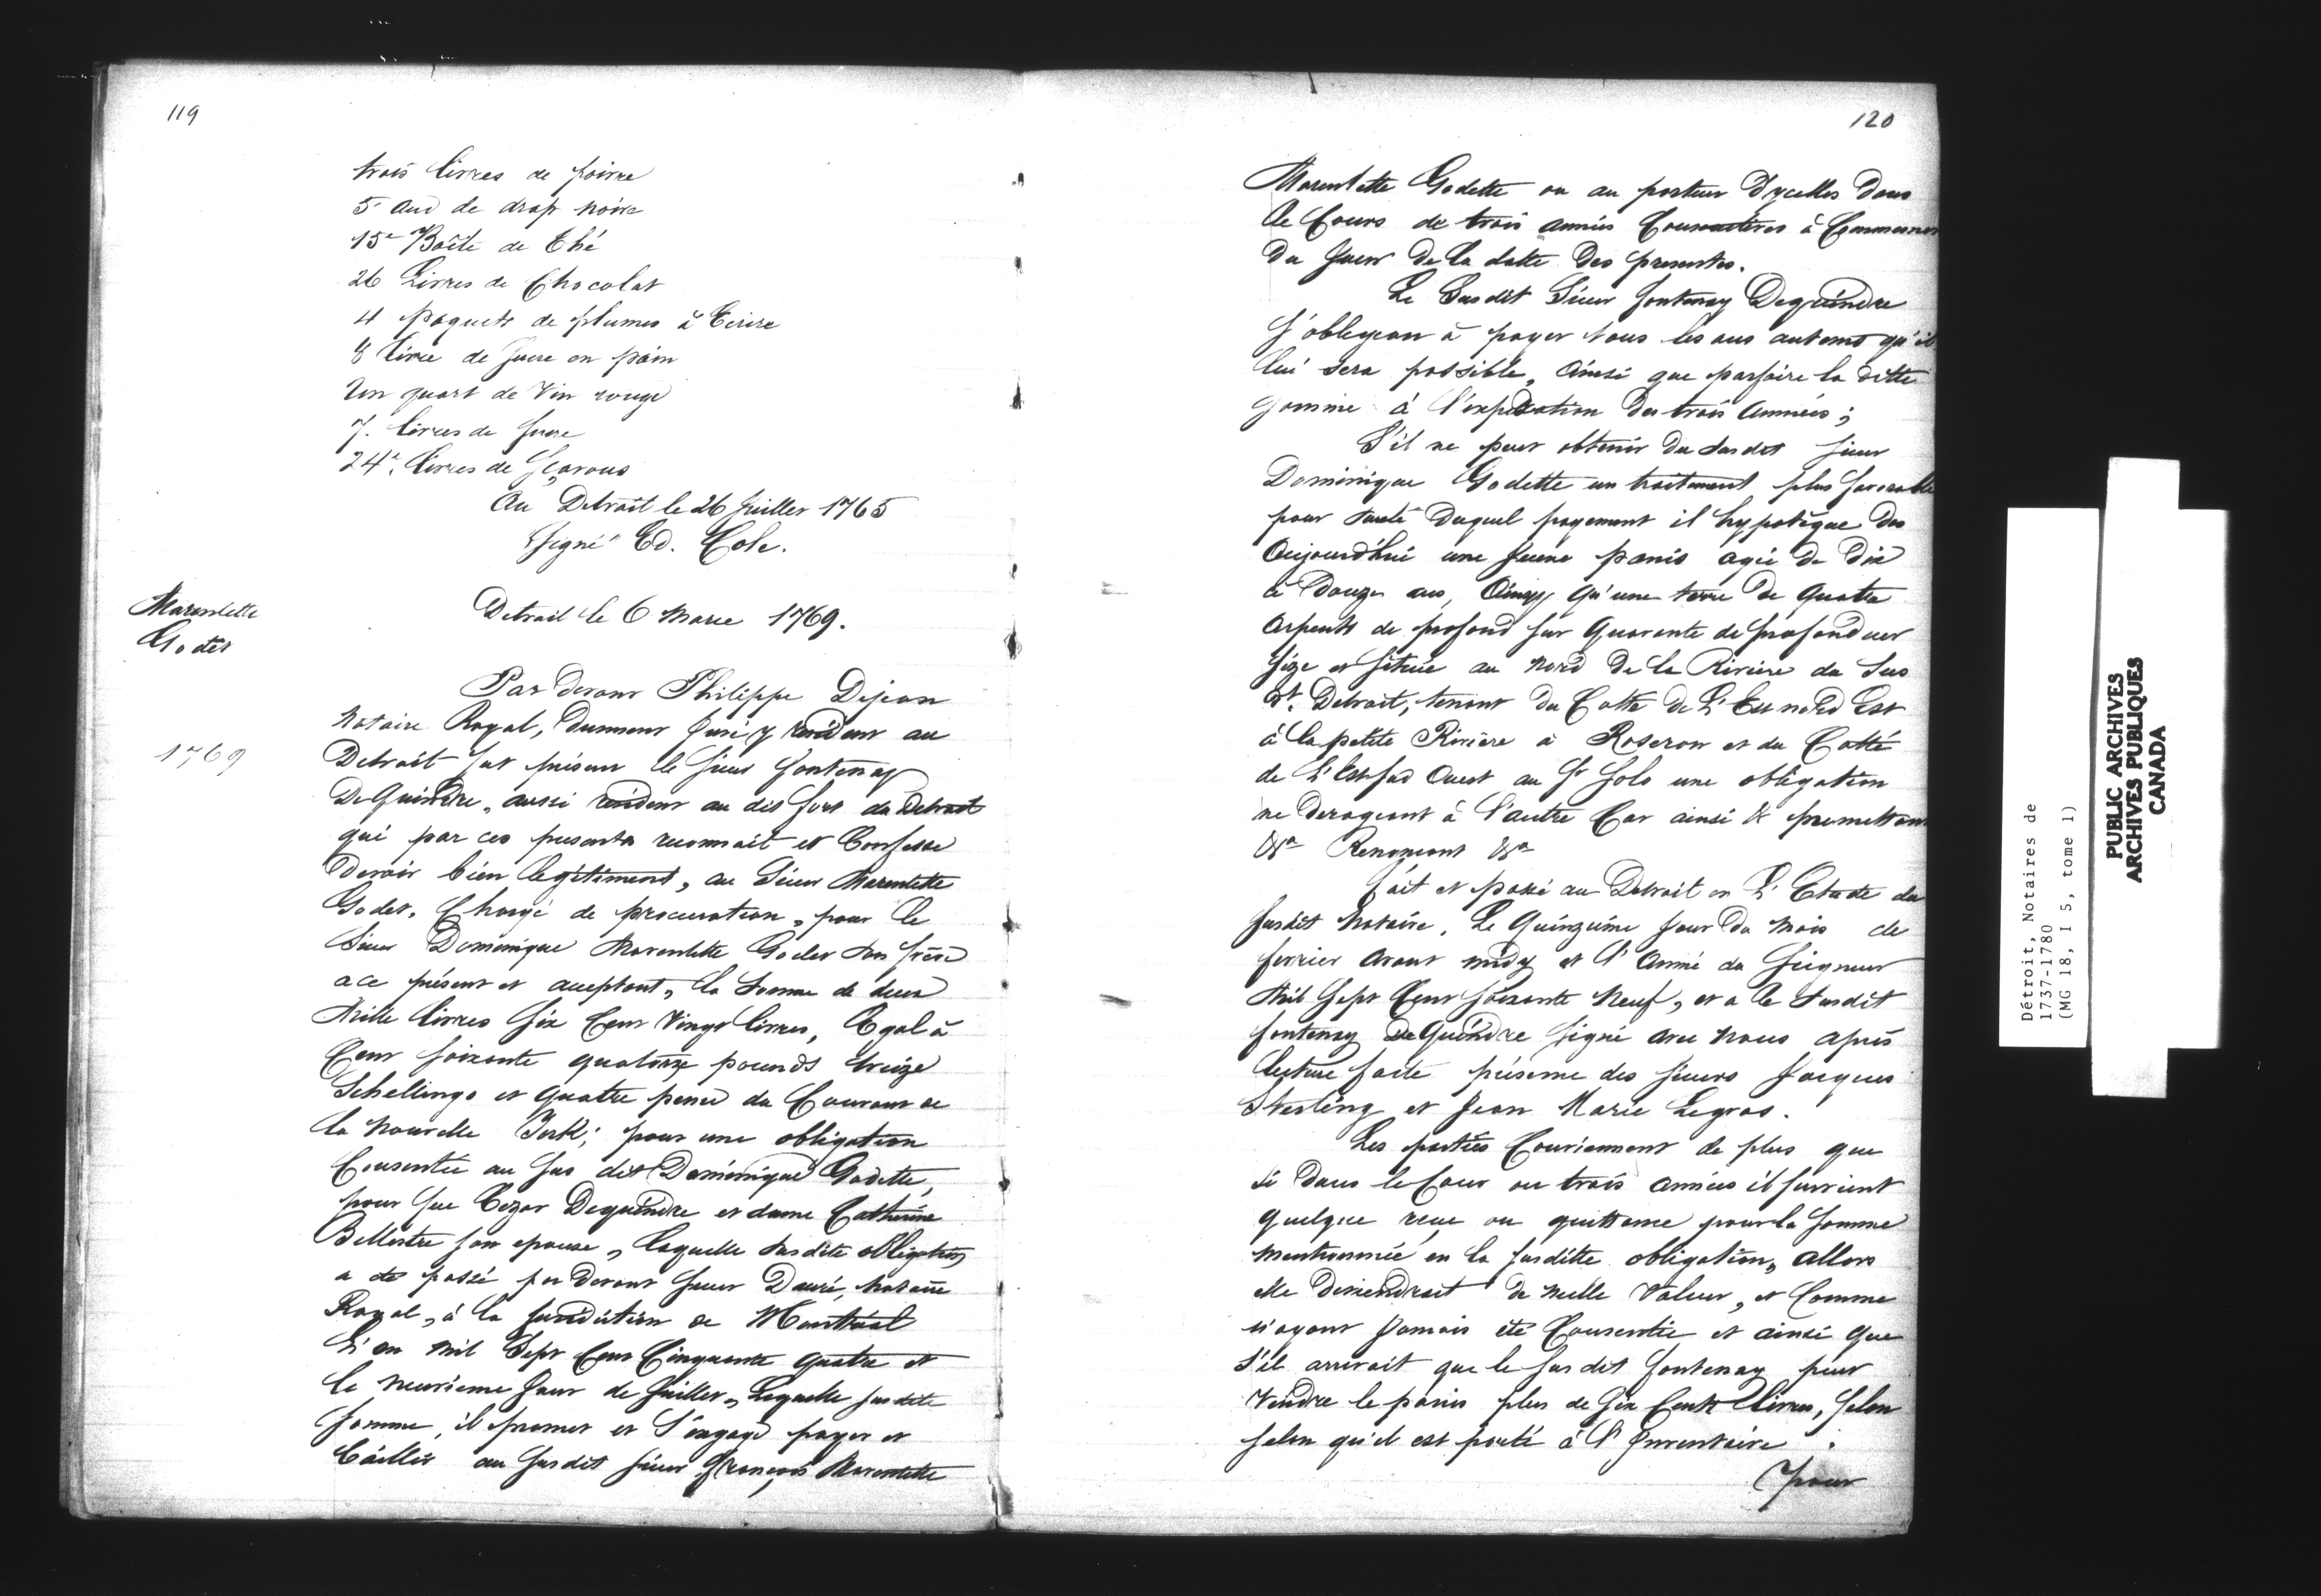 119
trois livres de poivre
5 aud de drap noire
15e Boîte de Thé
26 Livres de Chocolat
4 paquets de plumes à Ecrire
8 livre de sucre en pain
Un quart de Vin rouge
7. livres de sucre
24e. livres de Scavons
Au Detroit le 26 Juillet 1765
signé Ed. Cole.
Marentette
Godet
Detroit le 6 mars 1769.
Par devant Philippe Dejean
1769
notaire Royal, dument Juré y résidant au
Detroit fut présent le sieur fontenay
De Quindre, aussi résident au dit fort du Detroit
qui par ces presentes reconnait et Confesse
Devoir bien legitiment, au Sieur Marentette
Godet, Chargé de procuration, pour le
Sieur Dominique Marentette Godet son frère
a ce présent et acceptant, la somme de deux
Mille livres six Cent Vingt livres, Egal à
Cent soixante quatorze pounds treize
Schellings et quatre pence du Courant de
la nouvelle York; pour une obligation
Consentie au sus dit Dominique Godette,
pour feu Cezar Dequindre et dame Catherine
Bellestre son epouse, laquelle sus dite obligation
a été passé par devant sieur Dauré, notaire
Royal, à la juridiction de Montréal
L'an mil Sept Cent Cinquante quatre et
le neuvieme Jour de Juillet, Laquelle susdite
somme, il promet et s'engage payer et
bailler au susdit sieur François Marentette
120
Marentette Godette ou au porteur D'ycelles Dans
le Cours de trois années Consecutives à Commencer
Du Jour de la datte Des presentes.
Le Susdit Sieur fontenay Dequindre
s'obligeant à payer tous les ans autant qu'il
lui sera possible, Ainsi que parfaire la ditte
somme à l'expiration des trois années;
S'il ne peut obtenir du susdit sieur
Dominique Godette un traitement plus favorable
pour sureté Duquel payement il hypotèque Des
Aujourd'hui une Jeune panis agée de Dix
à Douze ans, Ainsy qu'une terre de quatre
Arpents de profond sur Quarante de profondeur
size et située au Nord de la Rivière du Sus
dt. Detroit, tenant du Cotté de L'Est nord Est
à la petite Rivière à Roseron et du Cotté
de L'Est sud Ouest au Sr Solo une obligation
ne derogeant à l'autre Car ainsi & promettant
&a Renonçant &a
fait et passé au Detroit en L'Etude du
susdit notaire, Le Quinzième Jour Du mois de
fevrier avant midy et l'Anné du Seigneur
Mil Sept Cent soixante Neuf, et a le susdit
fontenay De Quindre signé avec nous après
lecture faite présence des sieurs Jacques
Sterling et Jean Marie Legros.
Les parties Conviennent de plus que
si Dans le Cour ou trois années il survient
quelque reçue ou quittance pour la somme
mentionnée en la susditte obligation, allors
elle Deviendroit de nulle Valeur, et Comme
n'ayant Jamais été Consentie et ainsi que
s'il arrivait que le sus dit fontenay peut
Vendre le panis plus de Six Cents livres, selon
selon qu'il est porté à l'Inventaire.
Pour
Détroit, Notaires de
1737-1780
(MG 18, I 5, tome 1)
PUBLIC ARCHIVES
ARCHIVES PUBLIQUES
CANADA